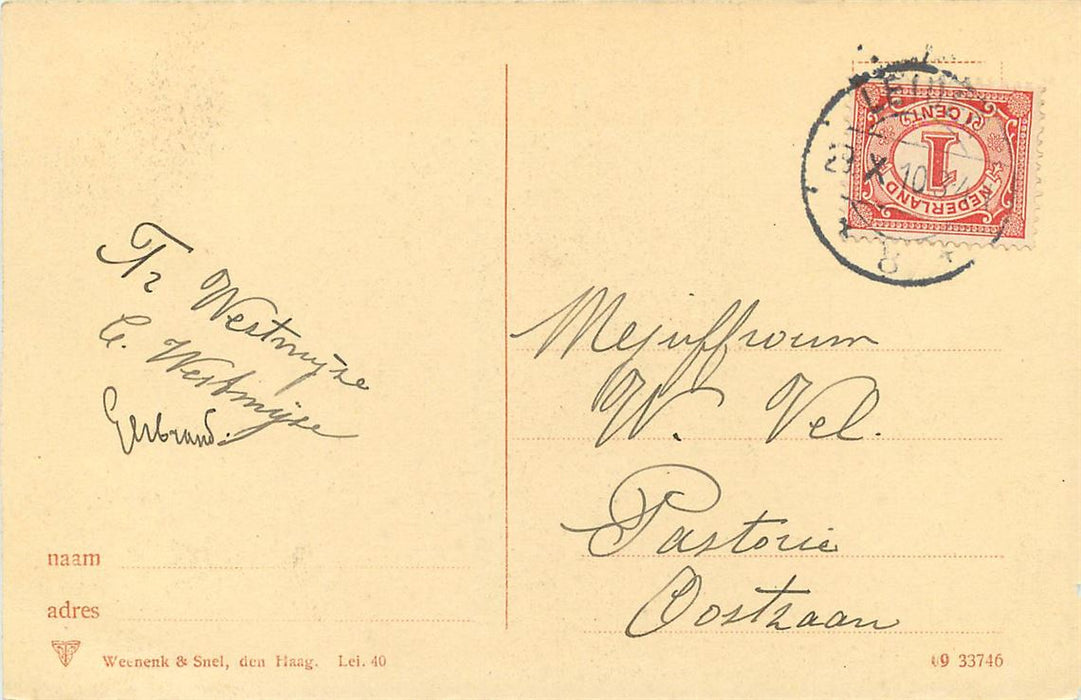 Tr Westmijze
C. Westmijse
Gerbrand.
naam
adres
Weenenk & Snel, den Haag. Lei. 40
1 CENT
1
NEDERLAND
X
8
Mejuffrouw
W. Vel.
Pastorie
Oostzaan
09 33746